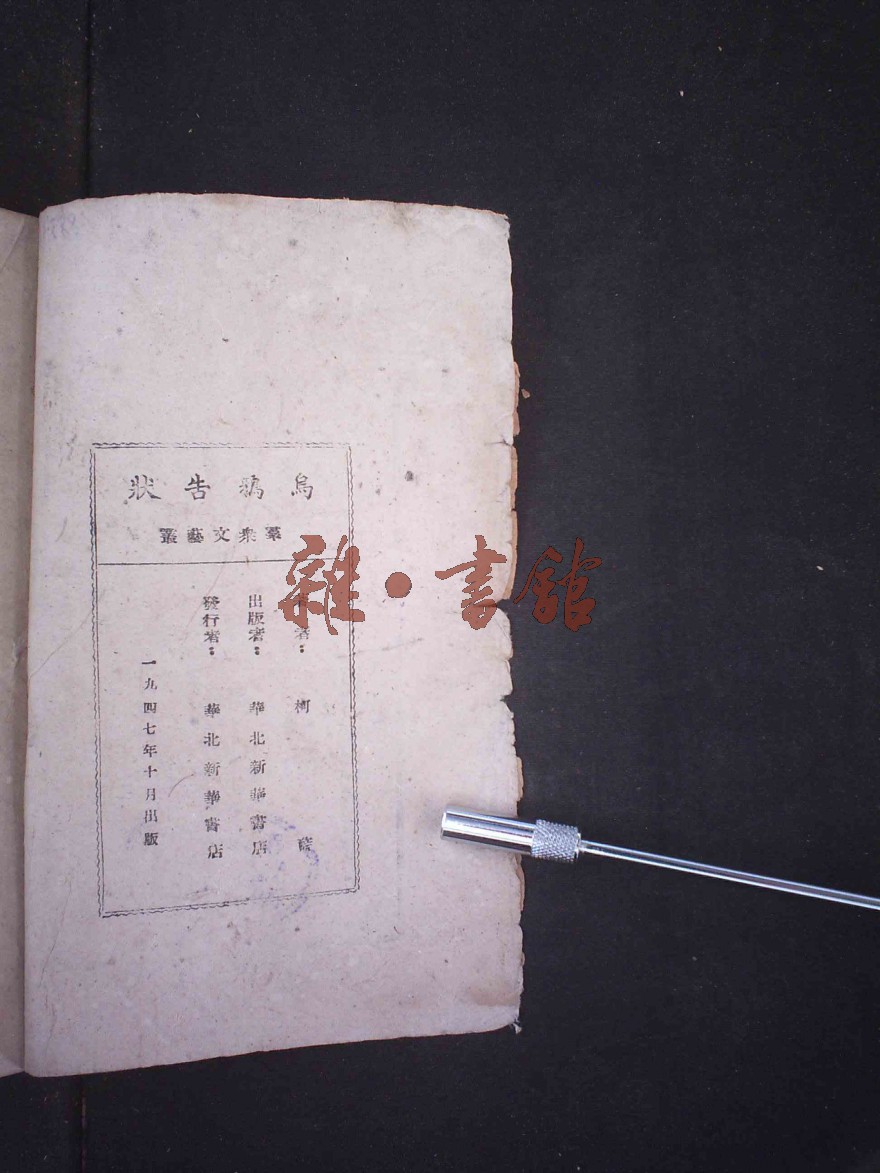 烏鴉告狀
羣衆文藝叢
著者：柯藍
出版者：華北新華書店
發行者：華北新華書店
一九四七年十月出版
雜·書館